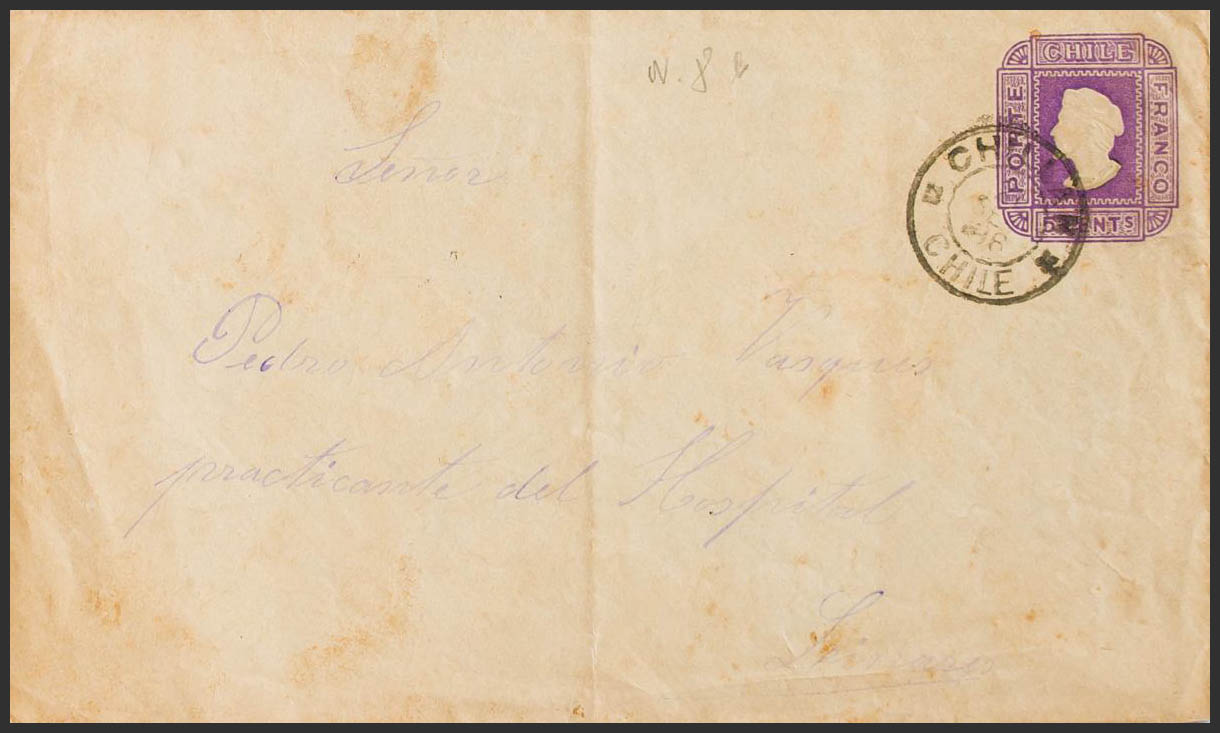 N. 8 b
CHILE
PORTE
FRANCO
5 CENTS
CHILLAN
96
CHILE
Señor
Pedro Antonio Vasques
practicante del Hospital
Linares